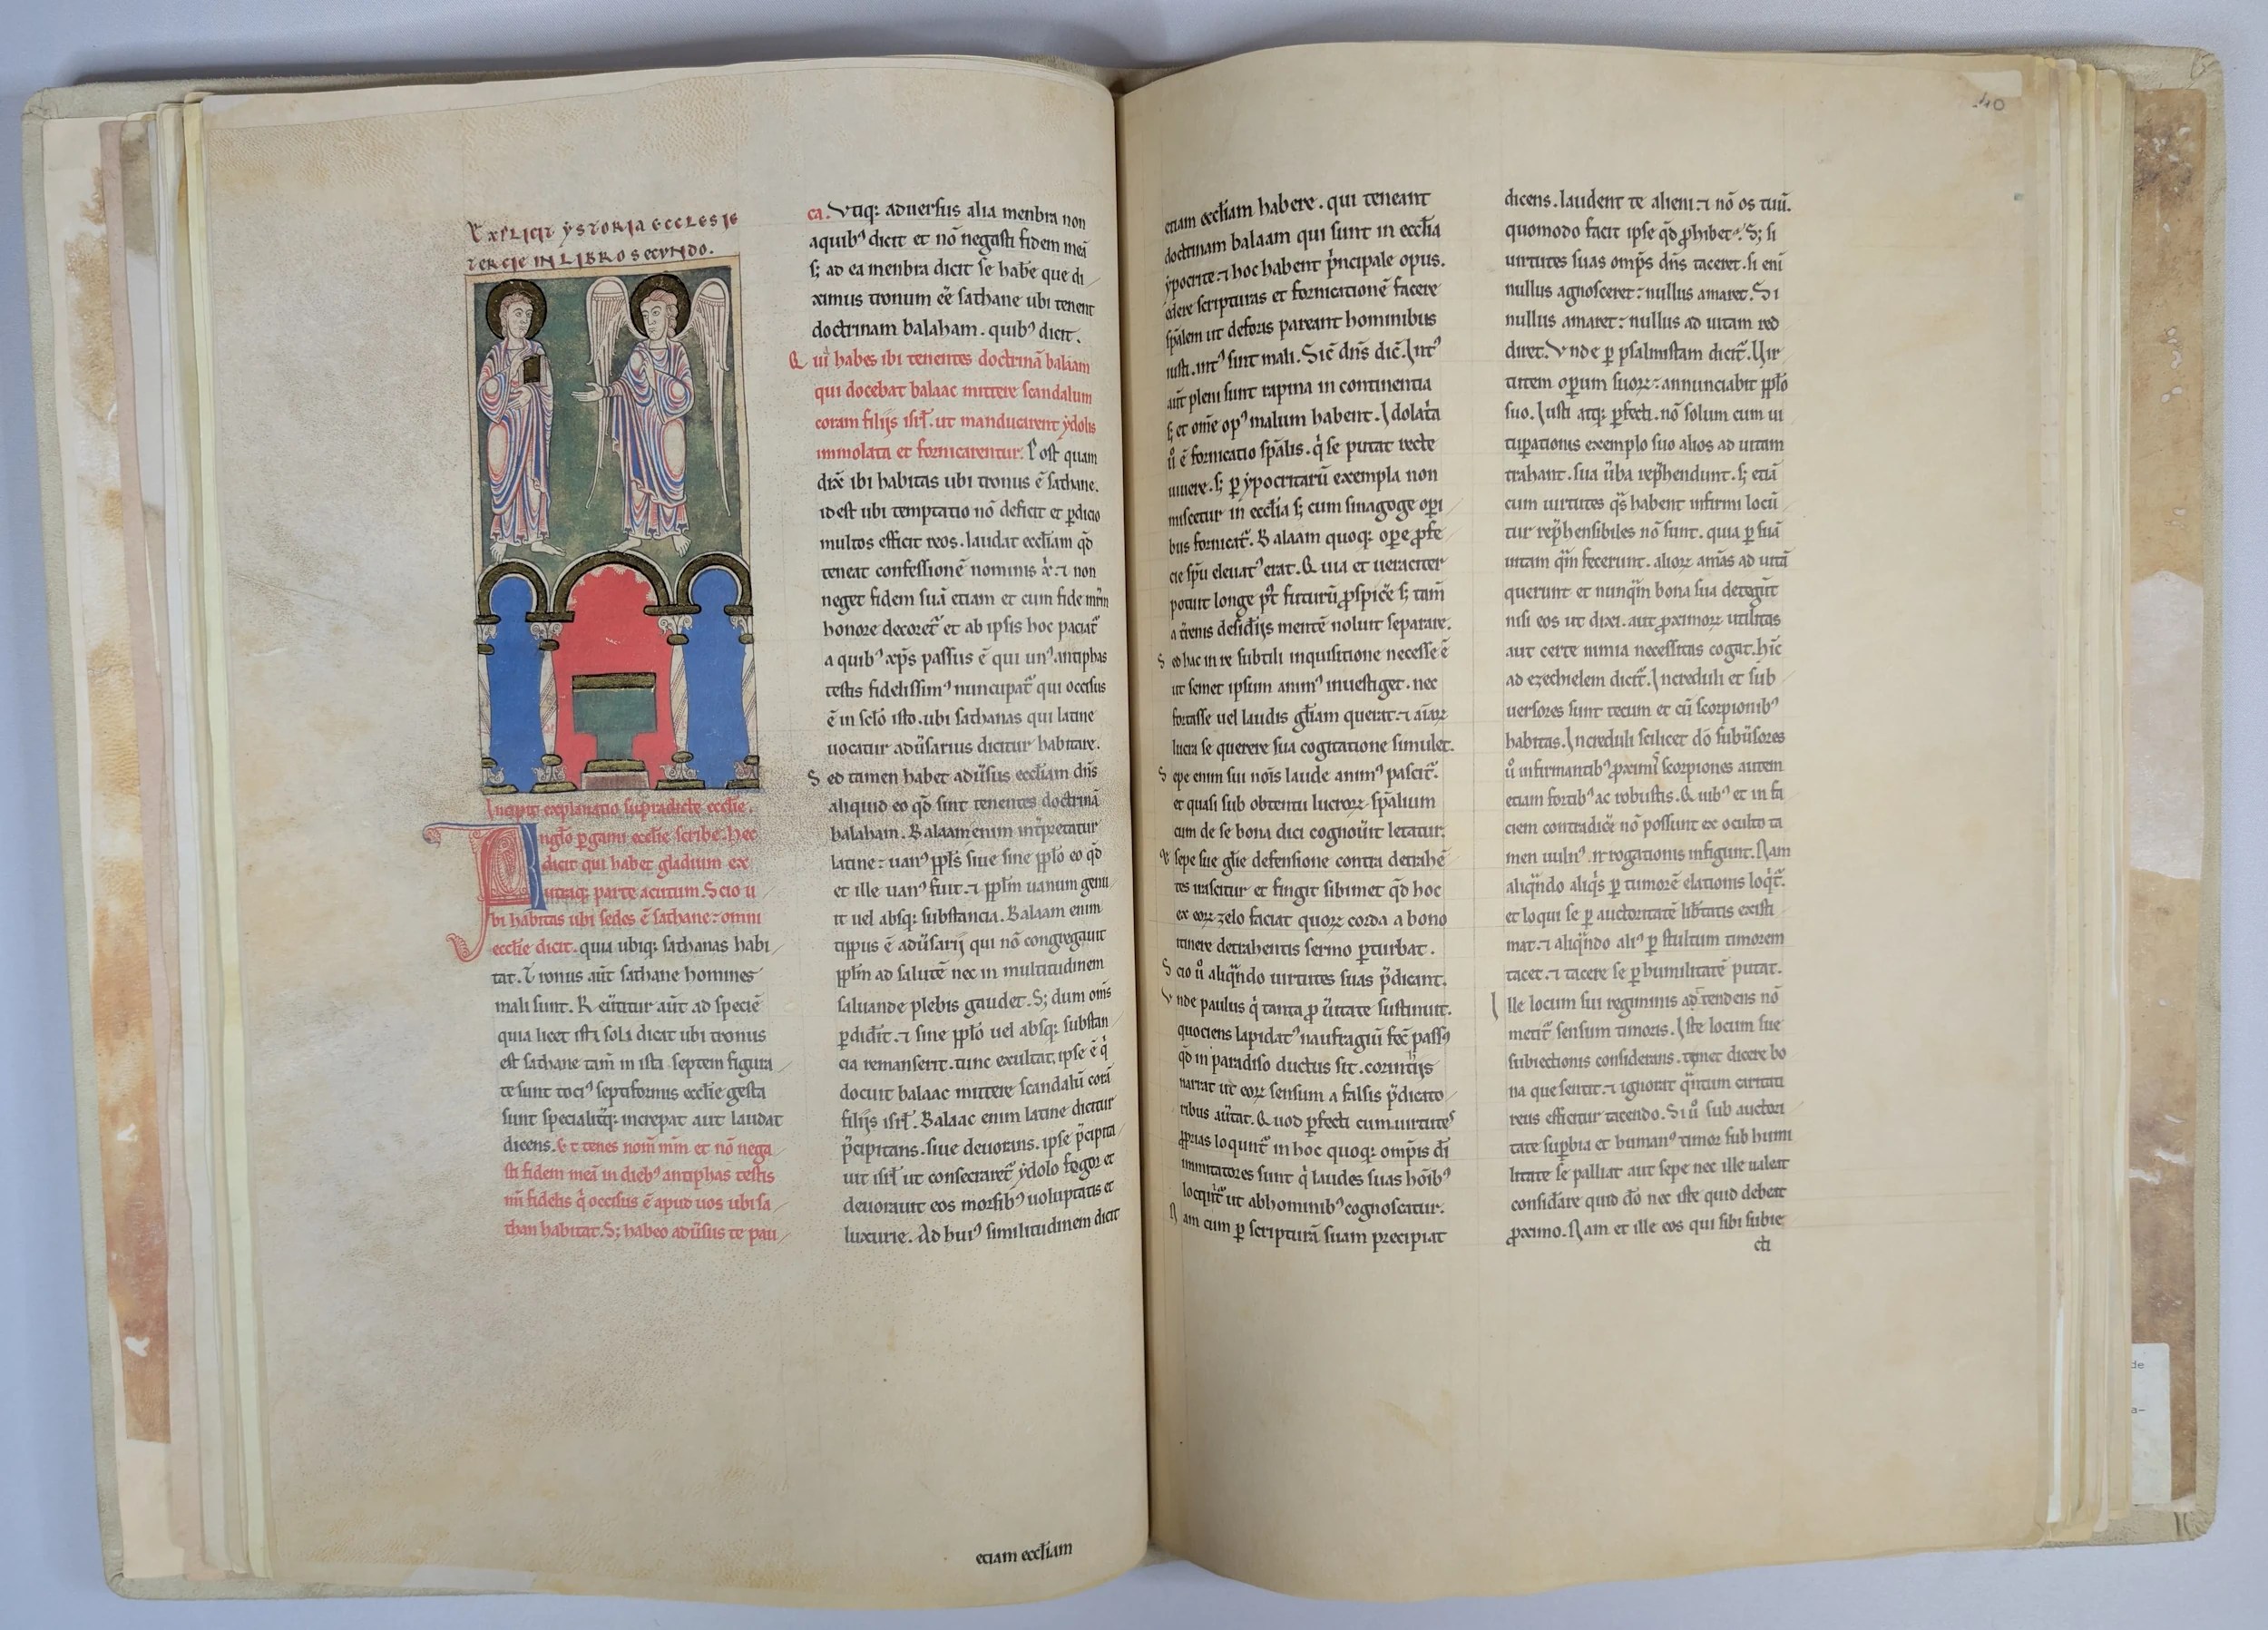 Explicit ẏstoria ecclesie
tercie in libro secundo.
Incipit explanatio supͣdicte ecclīe.
Anglo ꝑgami ecclīe scribe. hec
dicit qui habet gladium ex
utraqꝫ parte acutum. Scio u
bi habitas ubi sedes ē sathane: omni
ecclīe dicit. quia ubiqꝫ sathanas habi
tat. Tronus aūt sathane homines
mali sunt. Reūtitur aūt ad speciē
quia licet isti soli dicat ubi tronus
est sathane tam̄ in ista septem figura
te sunt tociꝰ septiformis ecclīe gesta
sunt specialit̄qꝫ increpat aut laudat
dicens. Et tenes nom̄ mm̄ et nō nega
sti fidem meā in diebꝰ antiphas testis
m̄ fidelis q̇ occisus ē apud uos ubi sa
than habitat. Sꝫ habeo adūsus te pau
ca. Vtiqꝫ aduersus alia menbra non
aquibꝰ dicit et nō negasti fidem meā
sꝫ ad ea menbra dicit se habe᷑ que di
ximus tronum eē sathane ubi tenent
doctrinam balaham. quibꝰ dicit.
Quı̇ habes ibi tenentes doctrinā balaam
qui docebat balaac mittere scandalum
coram filijs isrl̄. ut manducarent ẏdolis
immolata et fornicarentur. Post quam
dix̄ ibi habitas ubi tronus ē sathane.
id est ubi temptatio nō deficit et ꝑdicio
multos efficit reos. laudat eccl̄iam qđ
teneat confessionē nominis x̄ı. ⁊ non
neget fidem suā etiam et cum fide mr̄m
honore decoret᷑ et ab ipsis hoc paciat᷑
a quibꝰ xp̄s passus ē qui unꝰ antiphas
testis fidelissimꝰ nuncupat᷑ qui occisus
ē in sclō isto. ubi sathanas qui latine
uocatur adūsarius dicitur habitare.
Sed tamen habet adūsus eccl̄iam dn̄s
aliquid eo qđ sint tenentes doctrinā
balaham. Balaam enim int̄pretatur
latine: uanꝰ ppl̄s siue sine ppl̄o eo qđ
et ille uanꝰ fuit. ⁊ ppl̄m uanum genu
it uel absqꝫ substancia. Balaam enim
tippus ē adūsarij qui nō congregauit
ppl̄m ad salutē nec in multitudinem
saluande plebis gaudet. Sꝫ dum om̄s
ꝑdidit. ⁊ sine ppl̄o uel absqꝫ substan
cia remanserit. tunc exultat, ipse ē q̇
docuit balaac mittere scandalū corā
filijs isrl̄. Balaac enim latine dicitur
p̄cipitans. siue deuorans. ipse p̄cipita
uit isrl̄ ut consecraret᷑ ẏdolo fogor et
deuorauit eos morsibꝰ uoluptatis et
luxurie. Ad huiꝰ similitudinem dicit
etiam eccl̄iam
40
etiam eccl̄iam habere. qui teneant
doctrinam balaam qui sunt in eccl̄ia
ẏpocrite. ⁊ hoc habent pͥncipale opus.
edere scripturas et fornicationē facere
spālem ut deforis pareant hominibus
iusti. intꝰ sint mali. Sic̄ dn̄s dic̄. Intꝰ
aūt pleni sunt rapina in continentia
sꝫ et om̄e opꝰ malum habent. Idolat̄a
uͦ ē fornicatio spālis. q̇ se putat recte
uiuere. sꝫ ꝑ ẏpocritarū exempla non
miscetur in eccl̄ia sꝫ cum sinagoge opı̄
bus fornicat᷑. Balaam quoqꝫ ope ꝓfe
cie sp̄u eleuatꝰ erat. Quia et ueraciter
potuit longe p̄t futurū ꝓspic̄e sꝫ tam̄
a t̄renis desidijs mentē noluit separare.
Sed hac in re subtili inquisitione necesse ē
ut semet ipsum animꝰ inuestiget. nec
fortasse uel laudis gl̄iam querat. ⁊ aīaꝝ
lucra se querere sua cogitatione simulet.
Sepe enim sui nōīs laude animꝰ pascit᷑.
et quasi sub obtentu lucroꝝ spālium
cum de se bona dici cognoūit letatur.
Et sepe sue gl̄ie defensione contra detrahē
tes nascitur et fingit sibimet qđ hoc
ex eoꝝ zelo faciat quoꝝ corda a bono
itinere detrahentis sermo ꝑturbat.
Scio uͦ aliqͣndo uirtutes suas p̄dicant.
Vnde paulus q̇ tanta ꝓ ūitate sustinuit.
quociens lapidatꝰ naufragiū fec̄ passꝰ
qđ in paradiso ductus sit. corintijs
narrat ut eoꝝ sensum a falsis p̄dicato
ribus aūtat. Quod ꝑfecti cum uirtutes
ꝓprias loqunt᷑ in hoc quoqꝫ omp̄is dī
immitatores sunt q̇ laudes suas hoībꝰ
locqnt᷑ ut abhominibꝰ cognoscatur.
Nam cum ꝑ scripturā suam precipiat
dicens. laudent te alieni ⁊ nō os tuū.
quomodo facit ipse qđ ꝓhibet. Sꝫ si
uirtutes suas omp̄s dn̄s taceret. si enī
nullus agnosceret: nullus amaret. Si
nullus amaret: nullus ad uitam red
diret. Vnde ꝑ psalmistam dicit᷑. Uir
tutem oꝑum suoꝝ: annunciabit ppl̄o
suo. Iusti atqꝫ ꝑfecti. nō solum cum ui
tuꝑationis exemplo suo alios ad uitam
trahant. sua ūba rep̄hendunt. sꝫ etiā
cum uirtutes qͣs habent infirmi locū
tur rep̄hensibiles nō sunt. quia ꝑ suā
uitam qͣm fecerunt. alioꝝ aīas ad uitā
querunt et nunqͣm bona sua detegūt
nisi eos ut dixi. aut ꝓximoꝝ utilitas
aut certe nimia necessitas cogat. hīc
ad ezechielem dicit᷑. Increduli et sub
uersores sunt tecum et cū scorpionibꝰ
habitas. Increduli scilicet dō subūsores
uͦ infirmantibꝰ ꝓximı̄ scorpiones autem
etiam fortibꝰ ac robustis. Quibꝰ et in fa
ciem contradic̄e nō possunt ex oculto ta
men uulnꝰ irrogationis infigunt. Nam
aliqͣndo aliq̇s ꝑ tumorē elationis loqͥt᷑.
et loqui se ꝑ auctoritatē lib̄tatis existi
mat. ⁊ aliqͣndo aliꝰ ꝑ stultum timorem
tacet. ⁊ tacere se ꝑ humilitatē putat.
Ille locum sui regiminis ad tendens nō
metit᷑ sensum timoris. Iste locum sue
subiectionis considerans. timet dicere bo
na que sentit. ⁊ ignorat qͣntum caritati
reus efficitur tacendo. Si uͦ sub auctori
tate suꝑbia et humanꝰ timor sub humi
litate se palliat aut sepe nec ille ualeat
considāre quid dō nec iste quid debeat
ꝓximo. Nam et ille eos qui sibi subie
cti